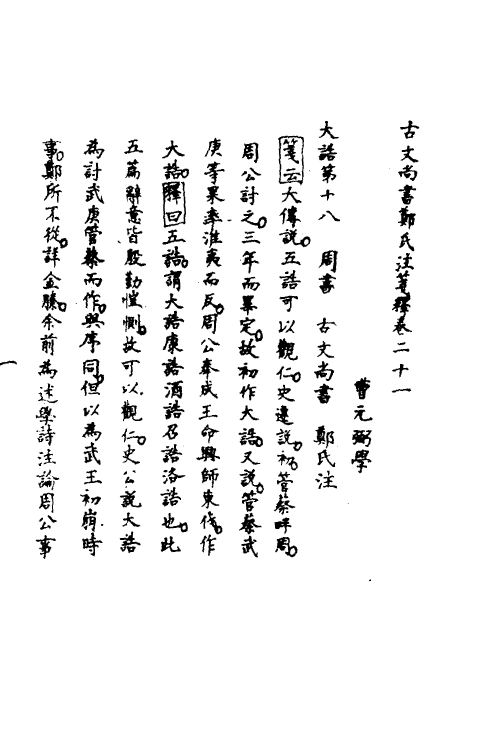 古文尚書鄭氏注箋釋卷二十一
曹元弼學
大誥第十八　周書　古文尚書　鄭氏注
箋云大傳說。五誥可以觀仁。史遷說。初管蔡畔周。
周公討之。三年而畢定。故初作大誥。又說。管蔡武
庚等果率淮夷而反。周公奉成王命興師東伐。作
大誥。釋曰五誥。謂大誥康誥酒誥召誥洛誥也。此
五篇辭意皆殷勤愷惻。故可以觀仁。史公說大誥
為討武庚管蔡而作。與序同。但以為武王初崩。時
事。鄭所不從。詳金縢。余前為述學詩注論周公事
一